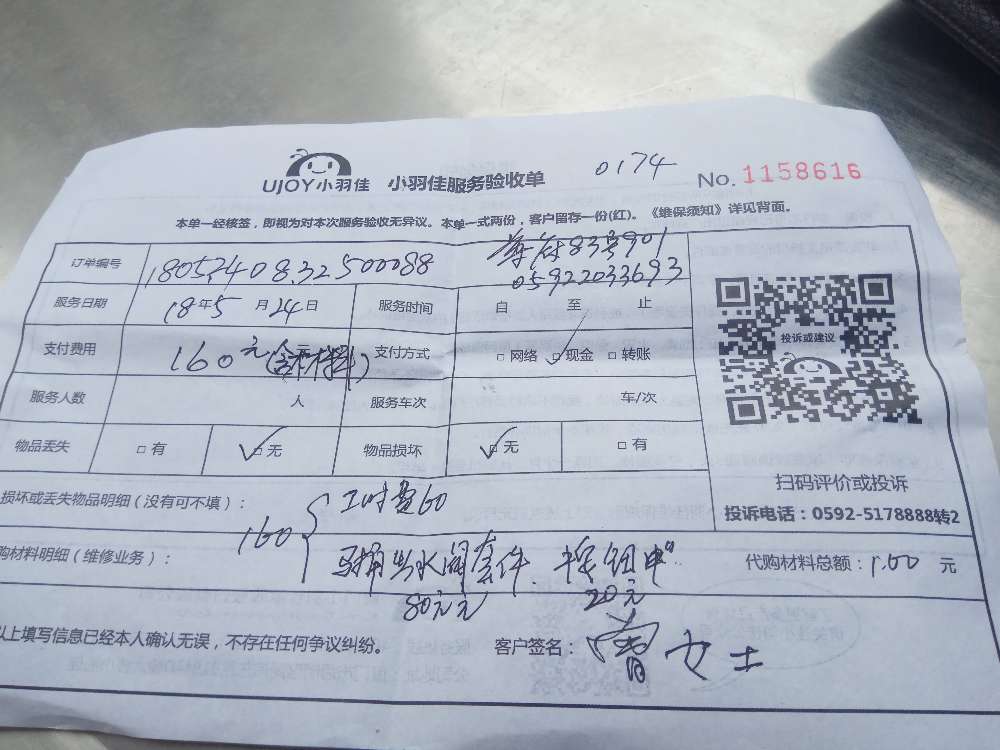 UJOY小羽佳 小羽佳服务验收单 0174 No. 1158616
本单一经核签，即视为对本次服务验收无异议。本单一式两份，客户留存一份(红)。《维保须知》详见背面。
订单编号 180534083250088 833901
05922033693
服务日期 18年5月24日 服务时间 自 至 止
支付费用 160元(含材料) 支付方式 □网络 □现金 □转账
投诉或建议
服务人数 人 服务车次 车/次
物品丢失 □有 □无 物品损坏 □无 □有
扫码评价或投诉
损坏或丢失物品明细（没有可不填）： 工时费60
投诉电话：0592-5178888转2
160
购材料明细（维修业务）： 马桶出水阀套件 按钮 代购材料总额：100 元
80元 20元
以上填写信息已经本人确认无误，不存在任何争议纠纷。 客户签名：曾女士